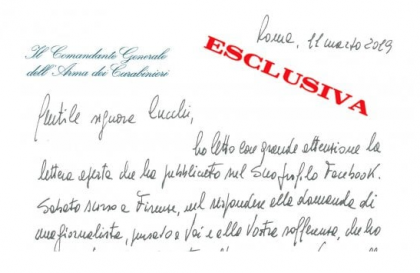 Roma, 11 marzo 2019
Il Comandante Generale
dell'Arma dei Carabinieri
ESCLUSIVA
Gentile signora Cucchi,
ho letto con grande attenzione la
lettera aperta che ha pubblicato sul Suo profilo Facebook.
Sabato scorso a Firenze, nel rispondere alla domanda di
una giornalista, pensavo a Voi e alla Vostra sofferenza, che ho